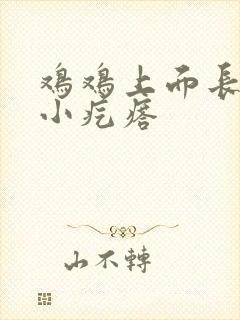 鸡鸡上而長
小疙瘩
山不轉